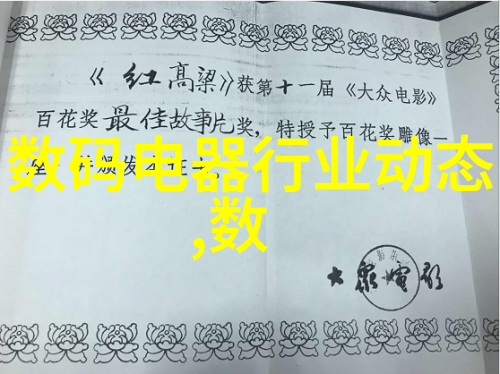 《红高梁》获第十一届《大众电影》
百花奖最佳故事片奖，特授予百花奖雕像一
数码电器行业动态
,数
大眾電影